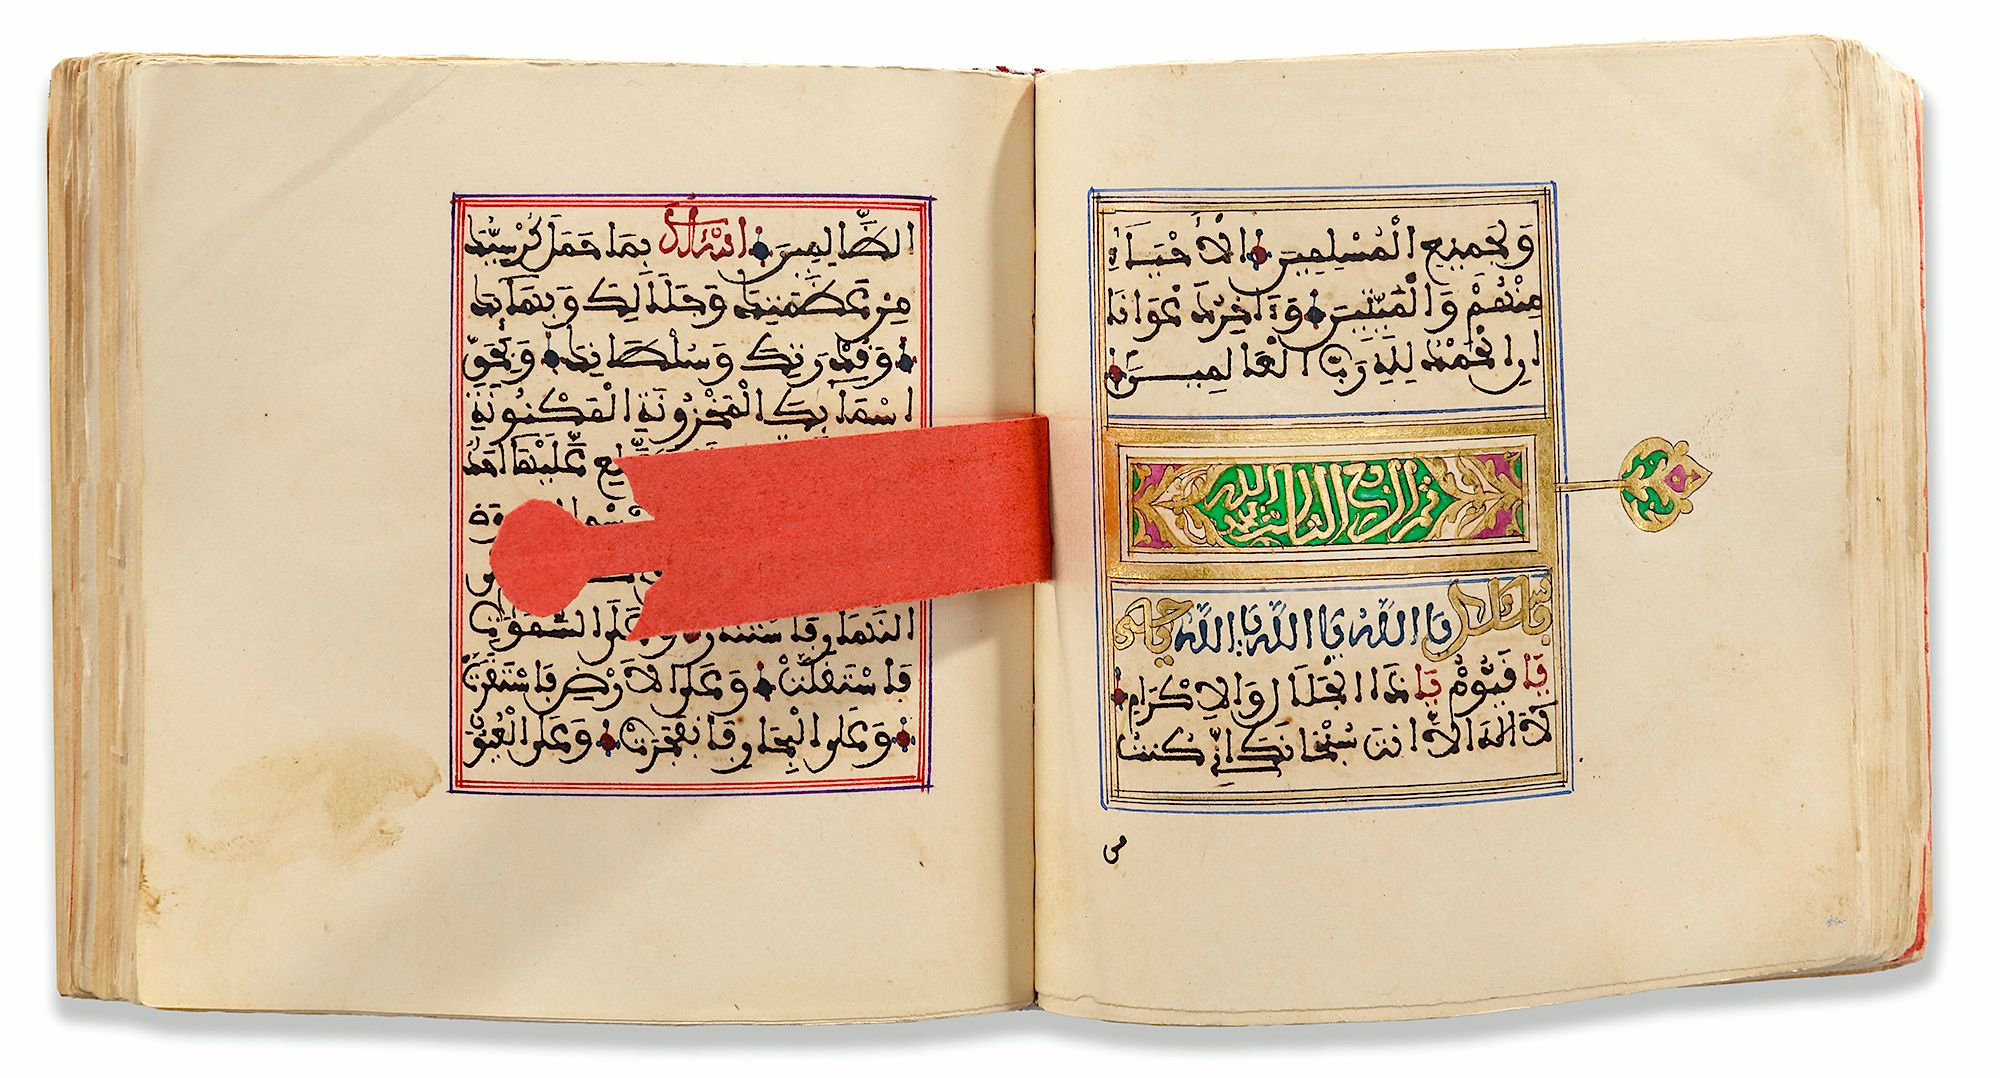 وَلجَمِيعِ الْمُسْلِمِينَ الاَحْيَاءِ
مِنْهُمْ وَالْمَيِّتِينَ وَءَاخِرُ دَعْوَانَا
انِ الحَمْدُ لِلهِ رَبِّ الْعَالَمِينَ
ثم الربع الثالث بحمد الله
يا الله يا الله يا الله يا حي
يَا قَيُّومُ يَا ذَا الجَلَالِ وَالاِكْرَامِ
لَا إِلَهَ الاَّ انتَ سُبْحَانَكَ انِّي كُنتُ
الظَّالِمِينَ اسْئَلُكَ بِمَا حَمَلَ كُرْسِيُّكَ
مِنْ عَظَمَتِكَ وَجَلَالِكَ وَبَهَائِكَ
وَقُدْرَتِكَ وَسُلْطَانِكَ وَبِحَقِّ
اسْمَائِكَ الْمَخْزُونَةِ الْمَكْنُونَةِ
عَلَيْهَا احَدٌ
النَّهَارِ فَاسْتَنَارَ وَعَلَى السَّمَوَاتِ
فَاسْتَقَلَّتْ وَعَلَى الاَرْضِ فَاسْتَقَرَّتْ
وَعَلَى الْبِحَارِ فَانفَجَرَتْ وَعَلَى الْعُيُونِ